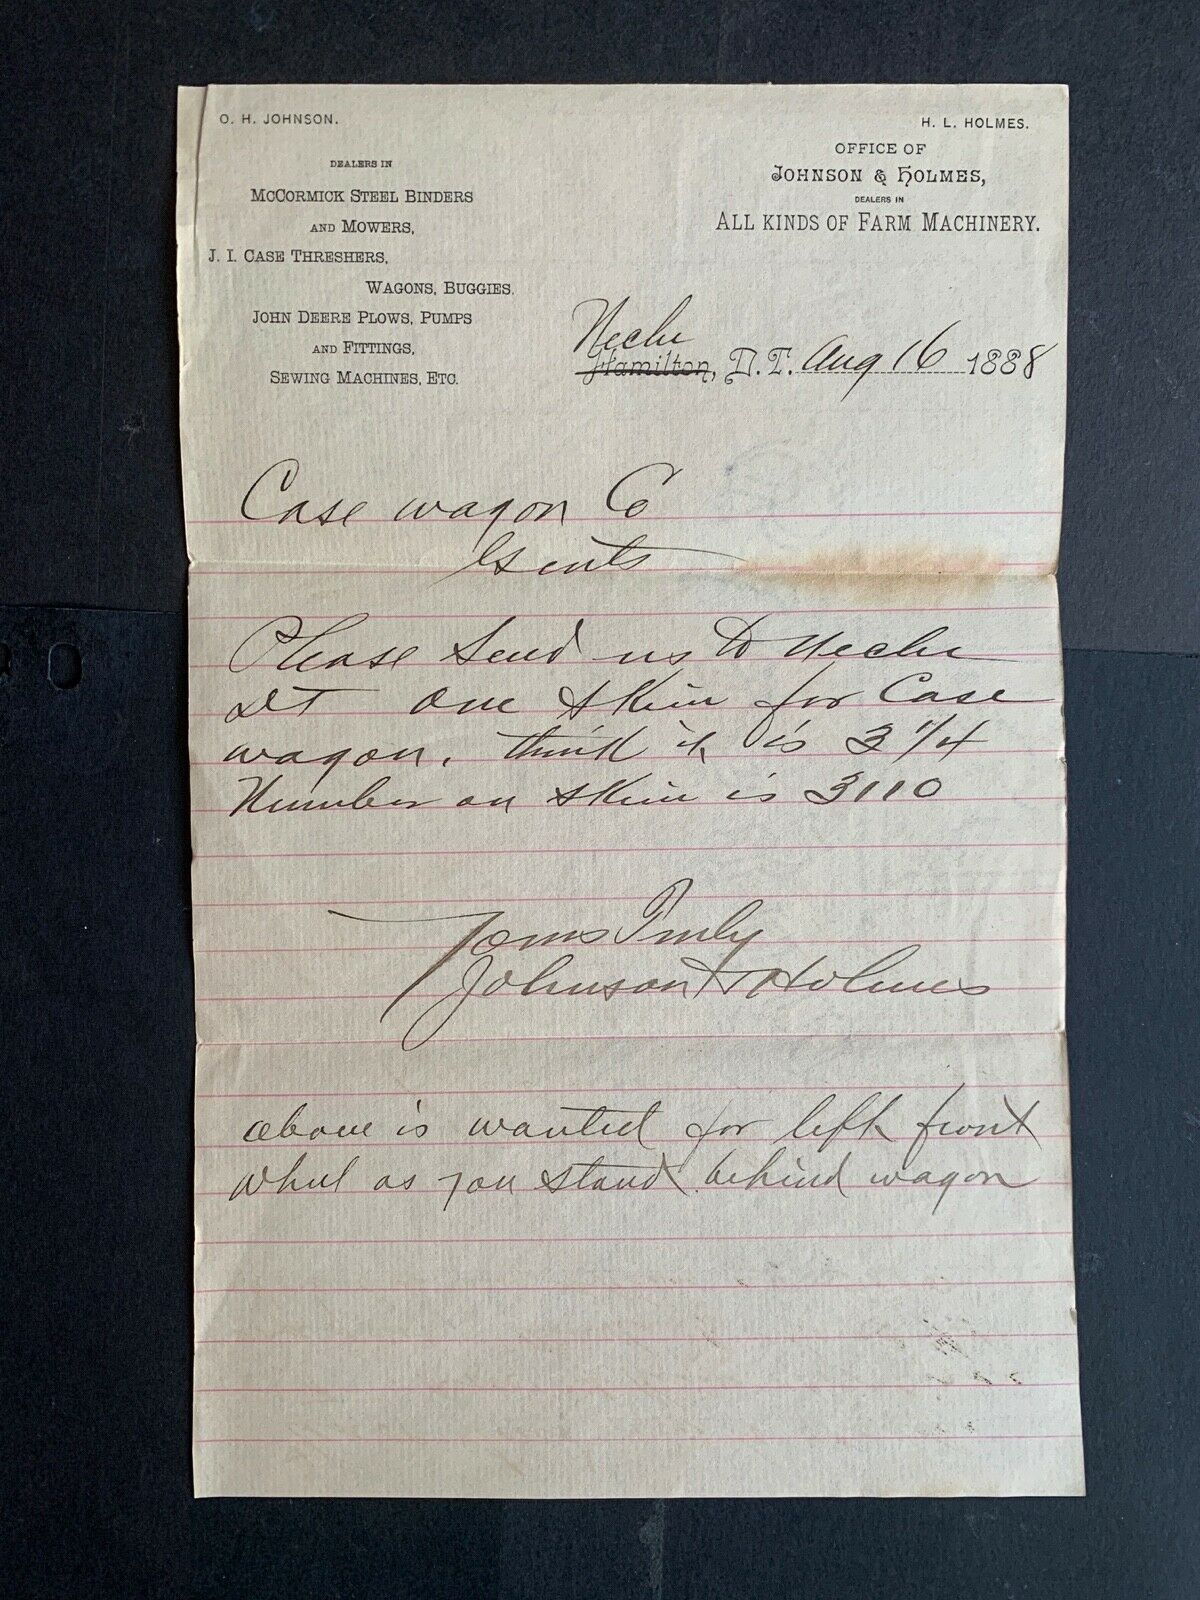 O. H. JOHNSON.
DEALERS IN
MCCORMICK STEEL BINDERS
AND MOWERS,
J. I. CASE THRESHERS,
WAGONS, BUGGIES,
JOHN DEERE PLOWS, PUMPS
AND FITTINGS,
SEWING MACHINES, ETC.
H. L. HOLMES.
OFFICE OF
JOHNSON & HOLMES,
DEALERS IN
ALL KINDS OF FARM MACHINERY.
Neche
Hamilton, D. T. Aug 16 1888
Case wagon Co
Gents
Please Send us to Neche
DT one skein for Case
wagon. think it is 3 1/4
Number on skein is 3110
Yours Truly
Johnson & Holmes
above is wanted for left front
wheel as you stand behind wagon